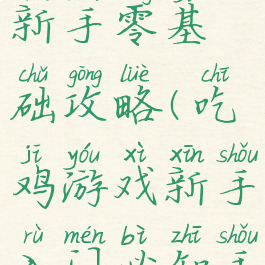 新手零基
chǔ gōng lüè chī
础攻略(吃
jī yóu xì xīn shǒu
鸡游戏新手
rù mén bì zhī shǒu
入门必知手